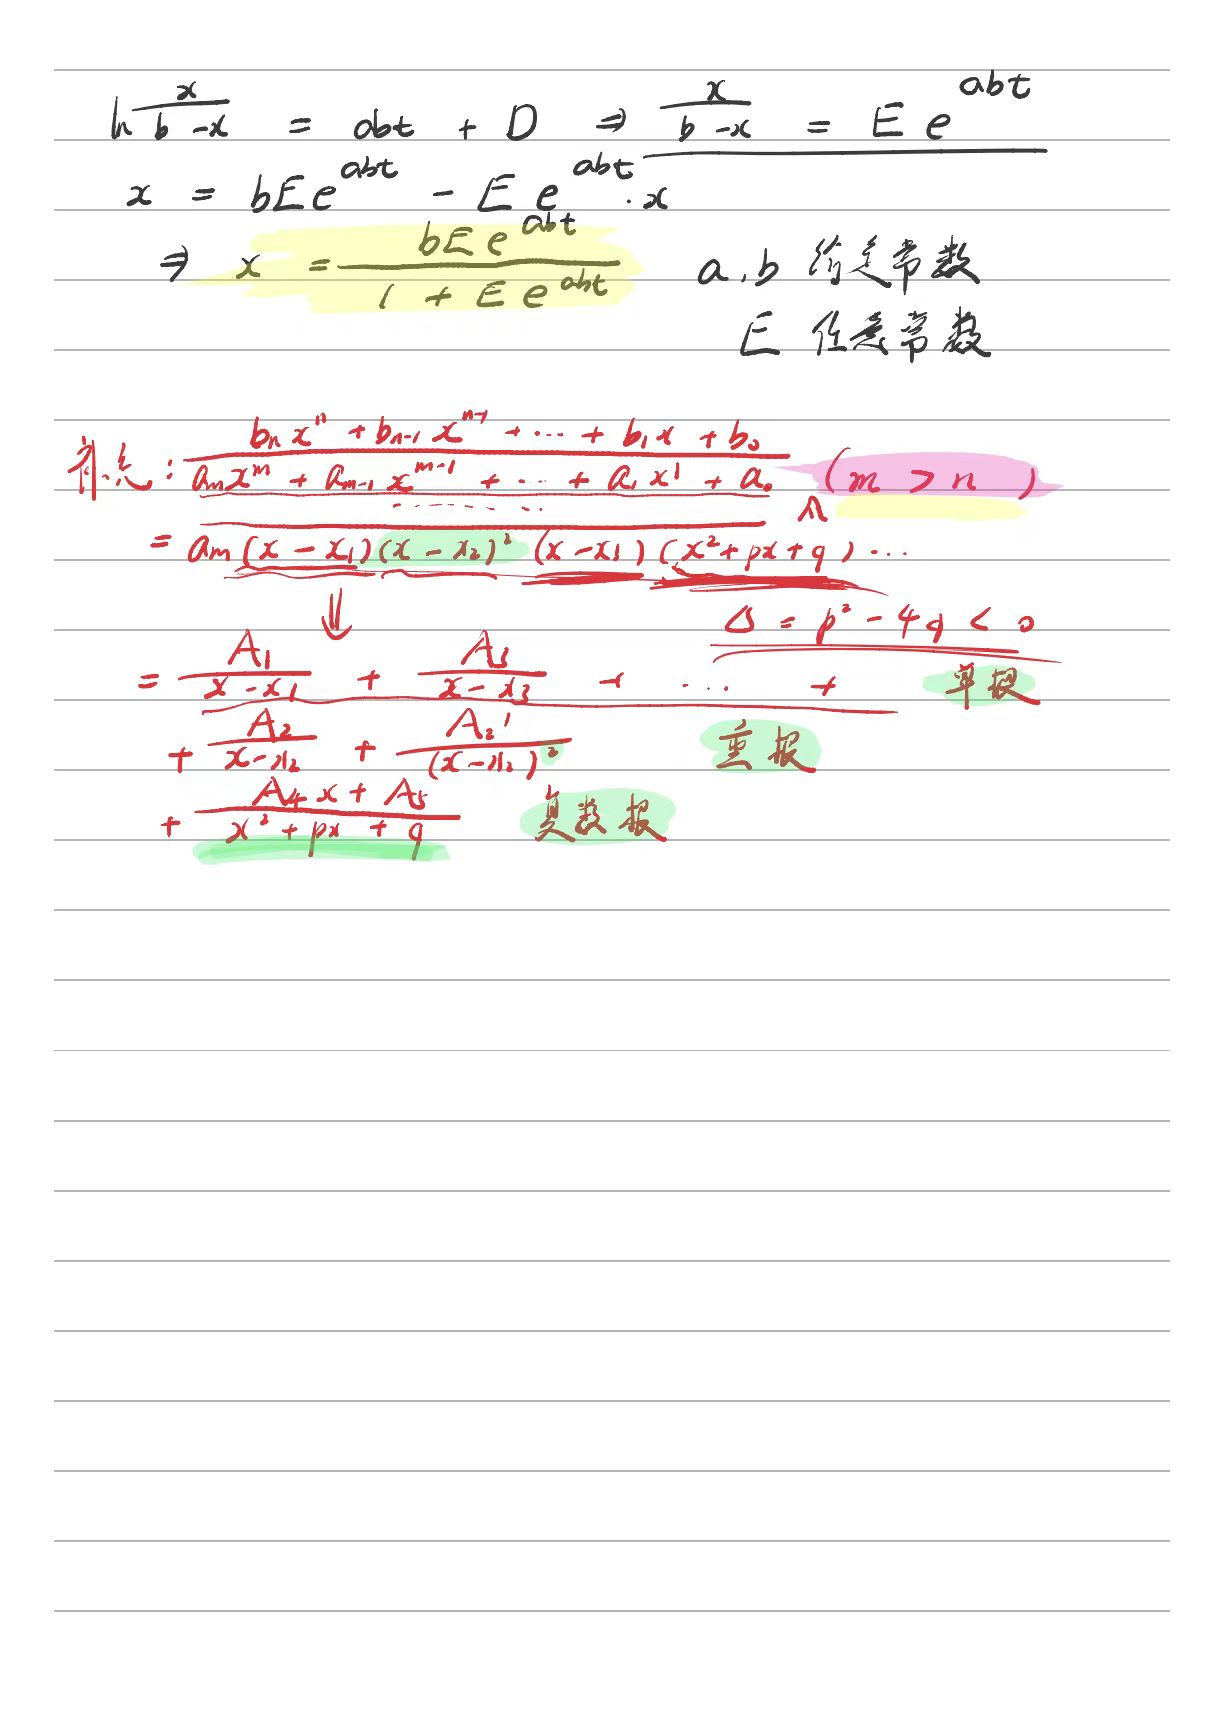 ln x/(b-x) = abt + D ⇒ x/(b-x) = E e^{abt}
x = bE e^{abt} - E e^{abt} · x
⇒ x = bE e^{abt} / (1 + E e^{abt})   a, b 给定常数
E 任意常数
补充: (b_n x^n + b_{n-1} x^{n-1} + ··· + b_1 x + b_0) / (a_m x^m + a_{m-1} x^{m-1} + ··· + a_1 x^1 + a_0) (m > n)
= ········ / a_m (x - x_1)(x - x_2)^2 (x - x_1)(x^2 + px + q) ···
⇓ Δ = p^2 - 4q < 0
= A_1/(x - x_1) + A_3/(x - x_3) + ··· + 单根
+ A_2/(x - x_2) + A_2'/(x - x_2)^2 重报
+ (A_4 x + A_5)/(x^2 + px + q) 复数报